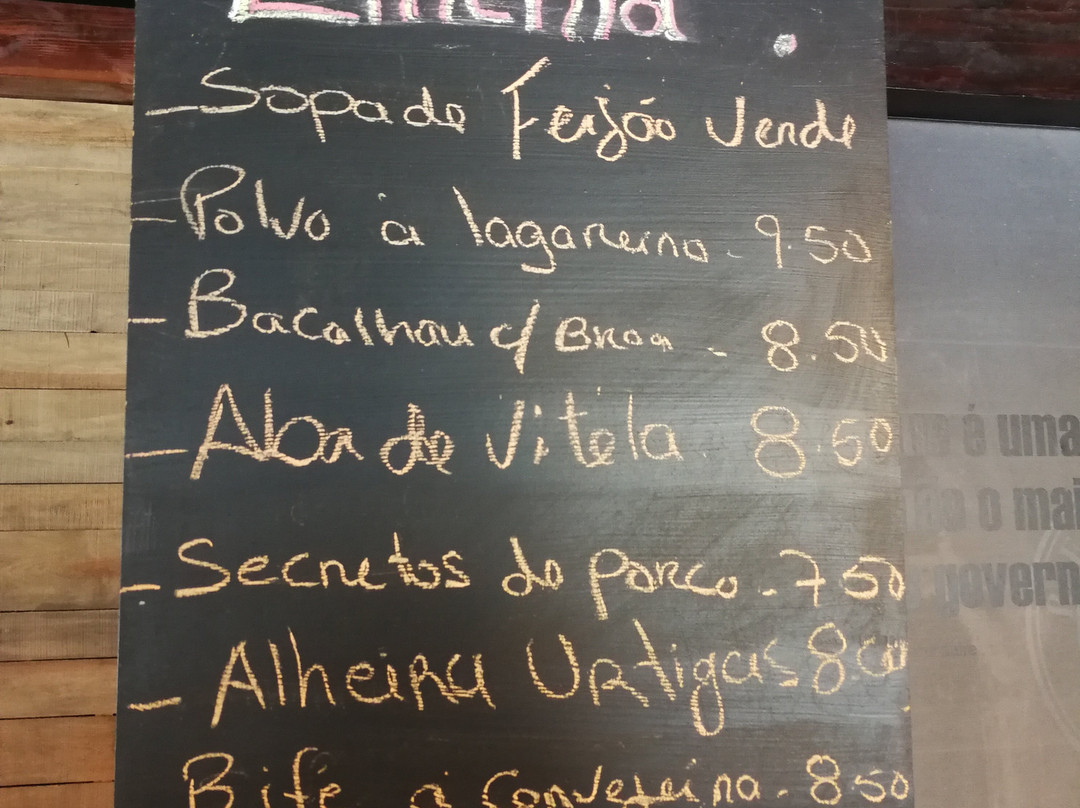 Ementa.
- Sopa de Feijão Verde
- Polvo à lagareiro - 9.50
- Bacalhau c/ Broa - 8.50
- Aba de Vitela 8.50
- Secretos de porco - 7.50
- Alheira Urtigas 8.00
Bife à Convereira - 8.50
é uma
o mai
govern